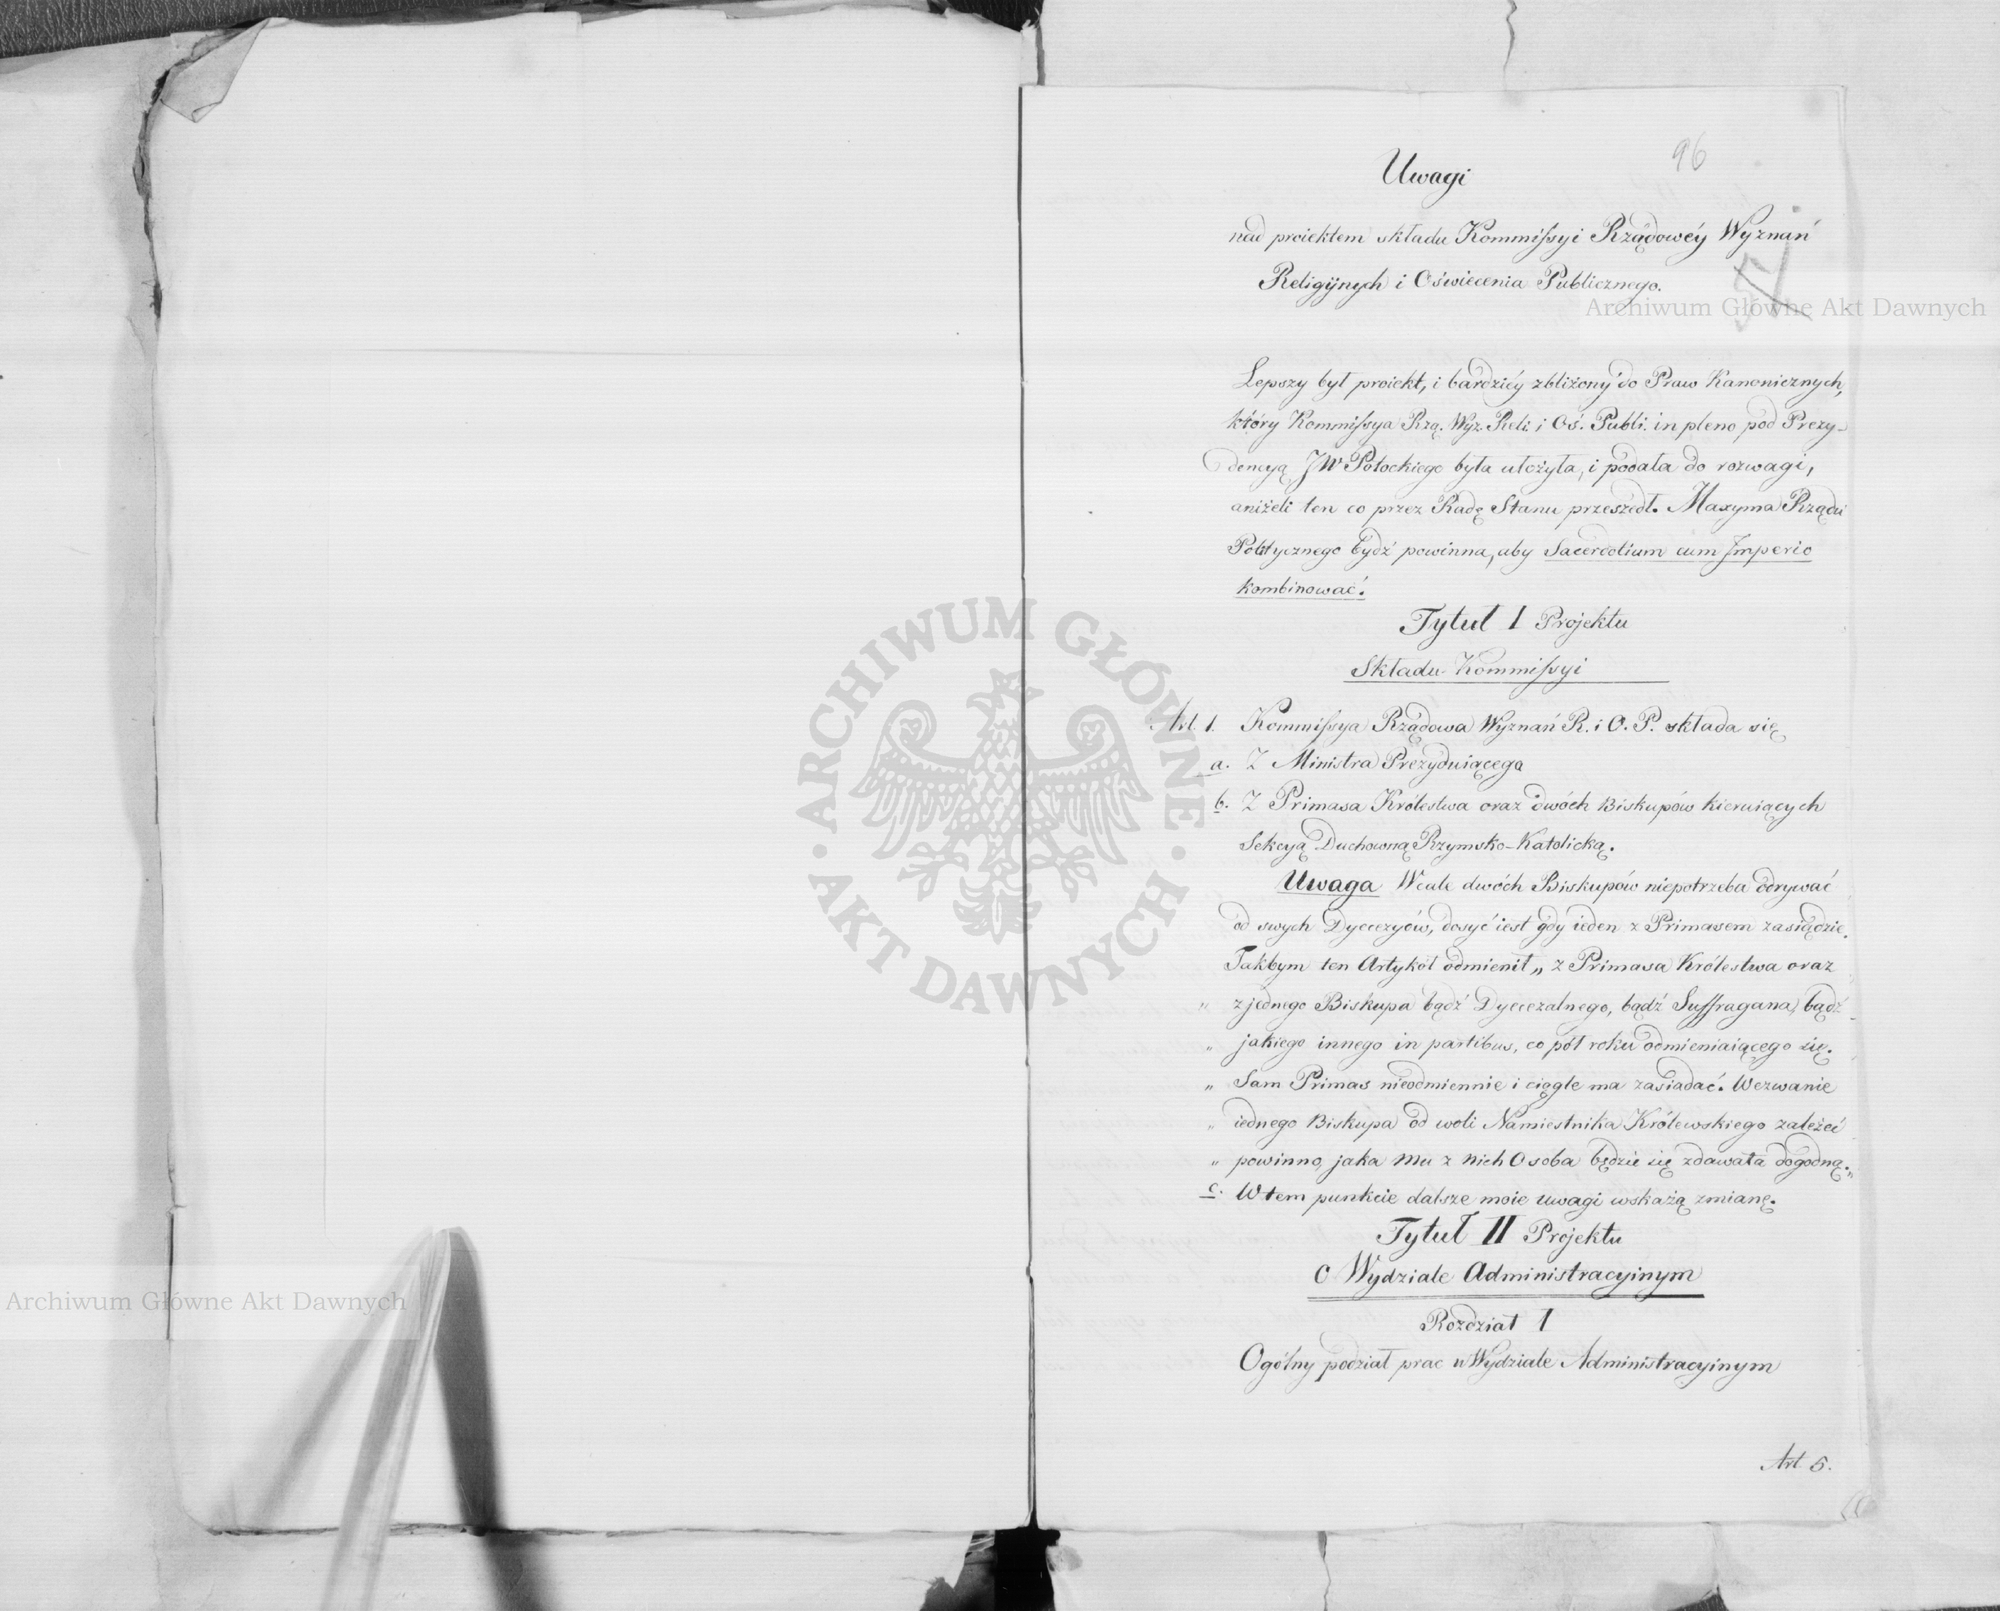 96
Uwagi
nad proiektem składu Kommissyi Rządowéy Wyznań
Religiynych i Oświecenia Publicznego.
Archiwum Główne Akt Dawnych
Lepszy był proiekt, i bardziéy zbliżony do Praw Kanonicznych,
który Kommissya Rzą. Wyz. Reli. i Oś. Publi. in pleno pod Prezy-
dencyą JW Potockiego była ułożyła, i podała do rozwagi,
aniżeli ten co przez Radę Stanu przeszedł. Maxyma Rządu
Politycznego bydź powinna, aby Sacerdotium cum Imperio
kombinować.
Tytuł I Projektu
Składu Kommissyi
Art. 1. Kommissya Rządowa Wyznań R. i O. P. składa się
a. Z Ministra Prezyduiącego
b. Z Primasa Królestwa oraz dwóch Biskupów kieruiących
Sekcyą Duchowną Rzymsko-Katolicką.
Uwaga Wcale dwóch Biskupów niepotrzeba odrywać
od swych Dyecezyów, dosyć iest gdy ieden z Primasem zasiędzie.
Takbym ten Artykół odmienił „ z Primasa Królestwa oraz
„ z jednego Biskupa bądź Dyecezalnego, bądź Suffragana, bądź
„ jakiego innego in partibus, co pół roku odmieniaiącego się.
„ Sam Primas nieodmiennie i ciągle ma zasiadać. Wezwanie
„ iednego Biskupa od woli Namiestnika Królewskiego zależeć
„ powinno, jaka mu z nich Osoba będzie się zdawała dogodną."
c. W tem punkcie dalsze moie uwagi wskażą zmianę.
Tytuł II Projektu
O Wydziale Administracyinym
Rozdział I
Ogólny podział prac w Wydziale Administracyinym
Art 5.
ARCHIWUM GŁÓWNE · AKT DAWNYCH ·
Archiwum Główne Akt Dawnych